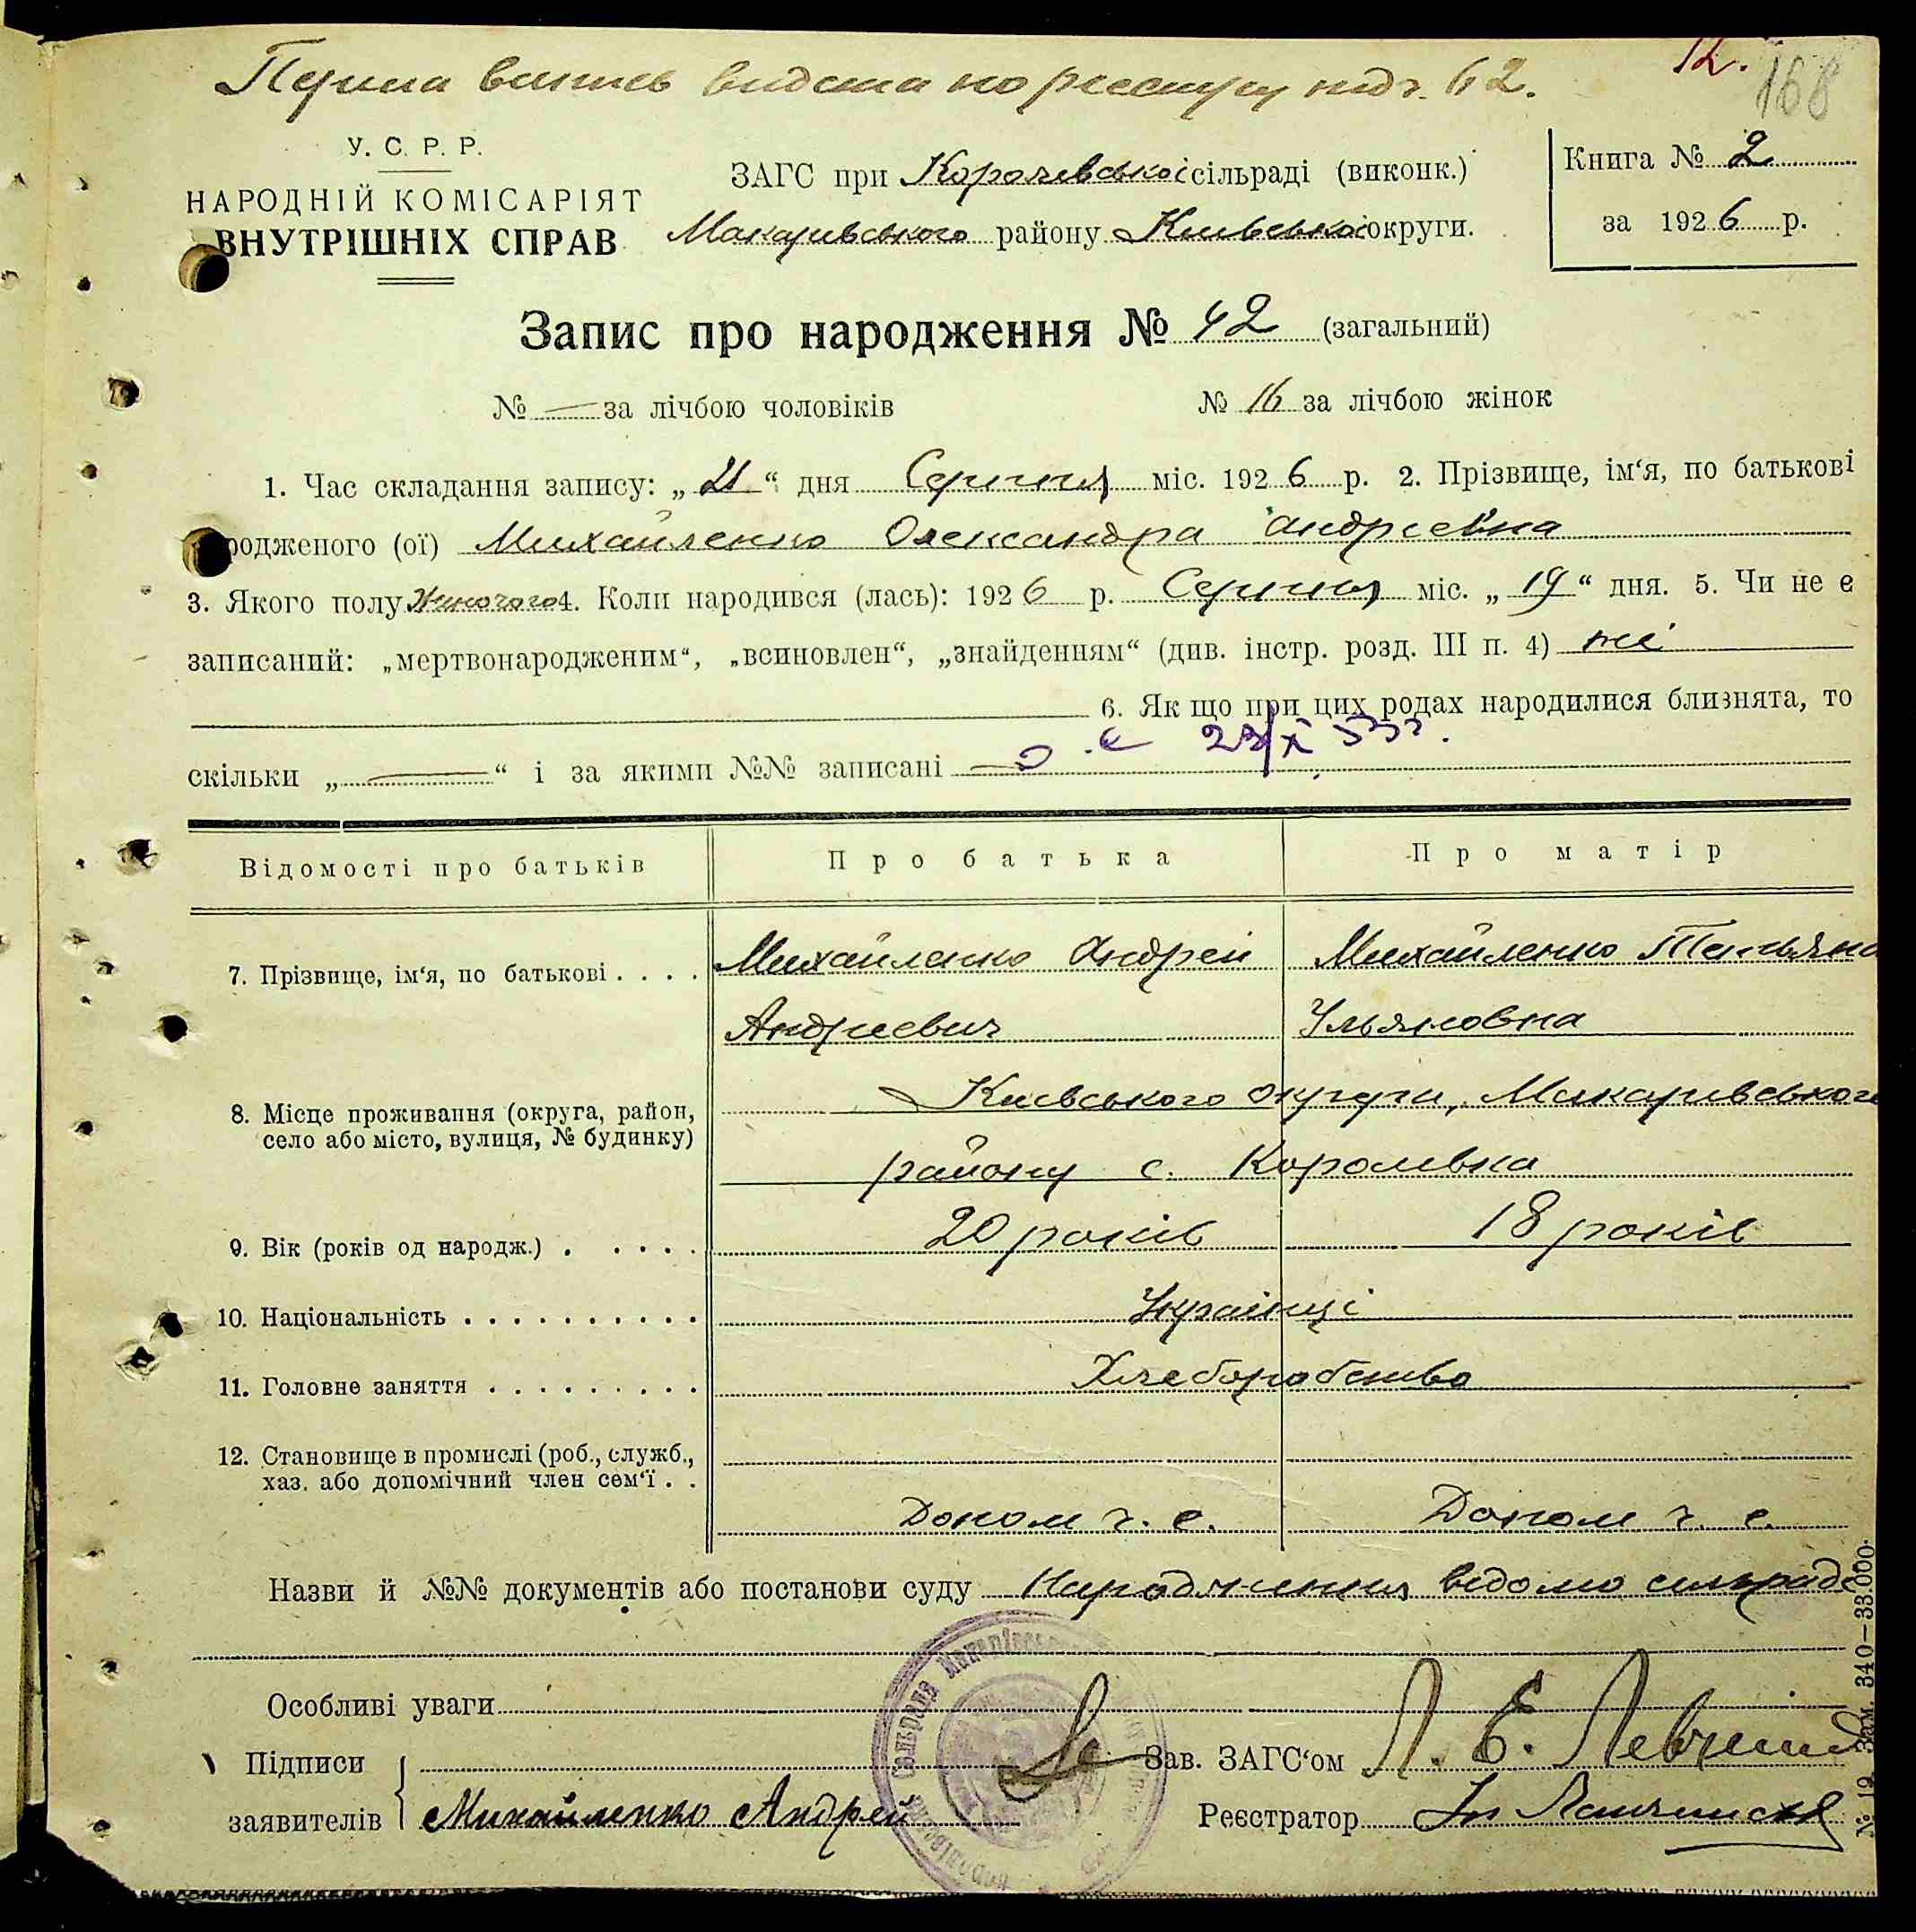 12.
168
Перша випись видана по реєстру під ч. 42.
У. С. Р. Р.
НАРОДНІЙ КОМІСАРІЯТ
ВНУТРІШНІХ СПРАВ
ЗАГС при Королевської сільраді (виконк.)
Макарівського району Київської округи.
Книга № 2
за 1926 р.
Запис про народження № 42 (загальний)
№ — за лічбою чоловіків № 16 за лічбою жінок
1. Час складання запису: „21“ дня Серпня міс. 1926 р. 2. Прізвище, ім‘я, по батькові
родженого (ої) Михайленко Олександра Андреевна
3. Якого полу Жиночого 4. Коли народився (лась): 1926 р. Серпня міс. „19“ дня. 5. Чи не є
записаний: „мертвонародженим“, „всиновлен“, „знайденням“ (див. інстр. розд. III п. 4) ні
6. Як що при цих родах народилися близнята, то
скільки „—“ і за якими №№ записані —
Відомості про батьків Про батька Про матір
7. Прізвище, ім‘я, по батькові . . . . Михайленко Андрей Михайленко Татьяна
Андриевич Ульяновна
8. Місце проживання (округа, район, Киевського округи, Макаривського
село або місто, вулиця, № будинку)
району с. Королевка
9. Вік (років од народж.) . . . . . 20 років 18 років
10. Національність . . . . . . . . . . Українці
11. Головне заняття . . . . . . . . . Хлеборобство
12. Становище в промислі (роб., служб.,
хаз. або допомічний член сем‘ї . .
Допом ч. с. Допом ч. с.
Назви й №№ документів або постанови суду Народження відомо сільраде
Особливі уваги
Підписи
заявителів Михайленко Андрей
Зав. ЗАГС‘ом Л. Е. Левченко
Реєстратор
№ 19. Зам. 340—33.000.